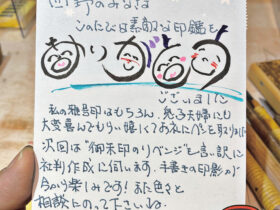 このたびは素敵な印鑑を
ありがとう
ございました
私の雅号印はもちろん、息子夫婦にも
大変喜んでもらい嬉しくてお礼にペンを取りました
次回は"御朱印のリベンジ"を言い訳に
社判作成に伺います。手書きの印影が
今から楽しみです!また色々と
相談にのって下さいね。